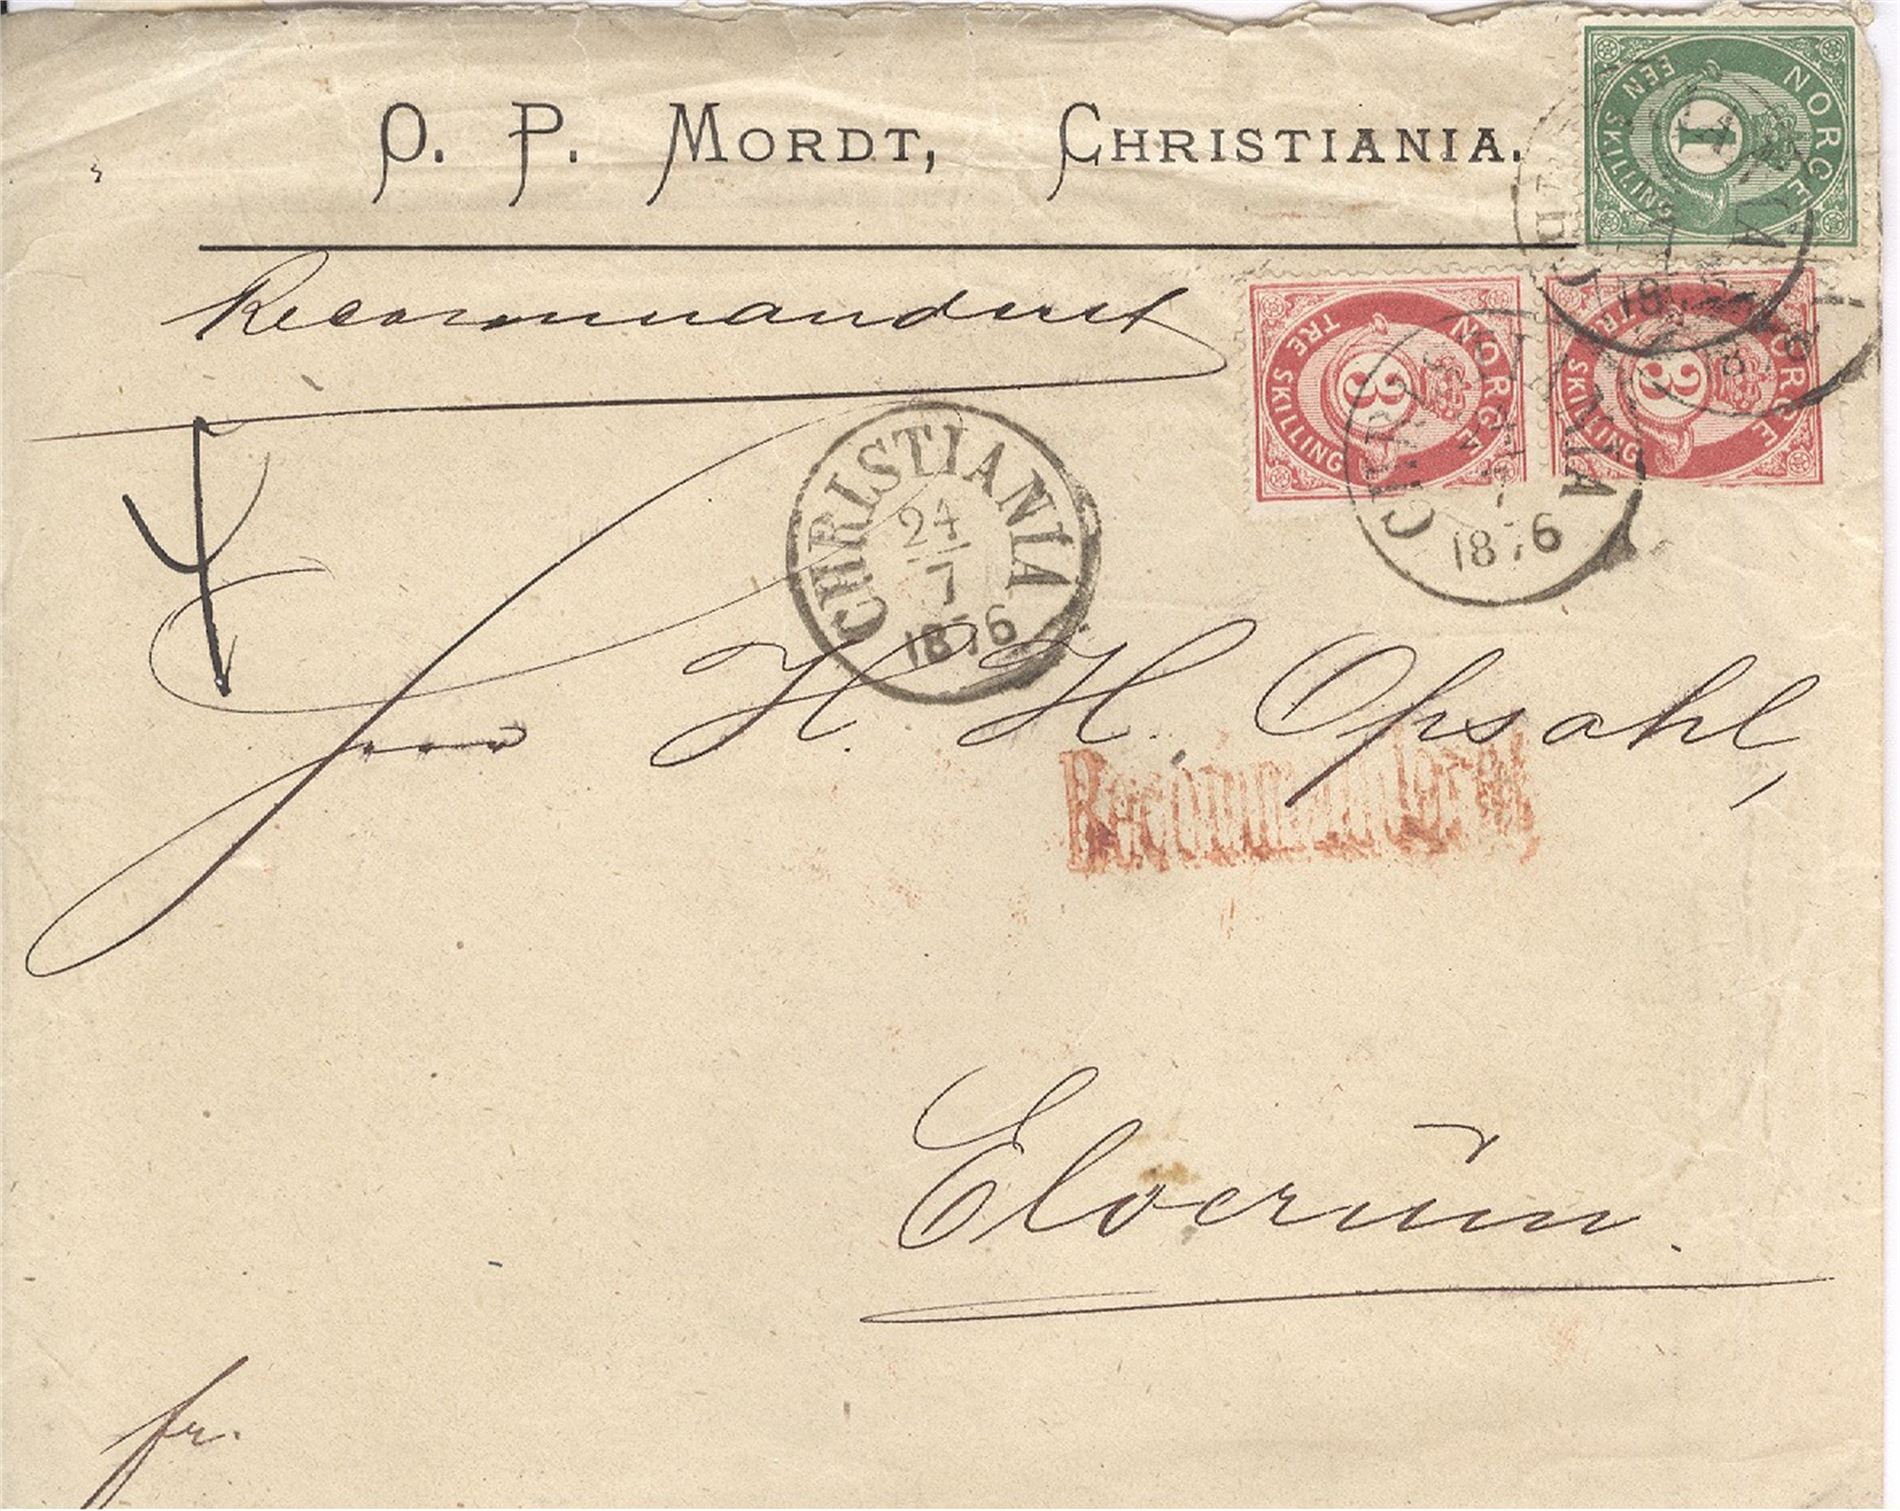 O. P. MORDT, CHRISTIANIA.
NORGE
1
EEN SKILLING
Recommanderet
NORGE
3
TRE SKILLING
NORGE
3
TRE SKILLING
CHRISTIANIA
24
7
1876
CHRISTIANIA
1876
Herr H. H. Opsahl,
Recommanderet
Elverum.
fr.